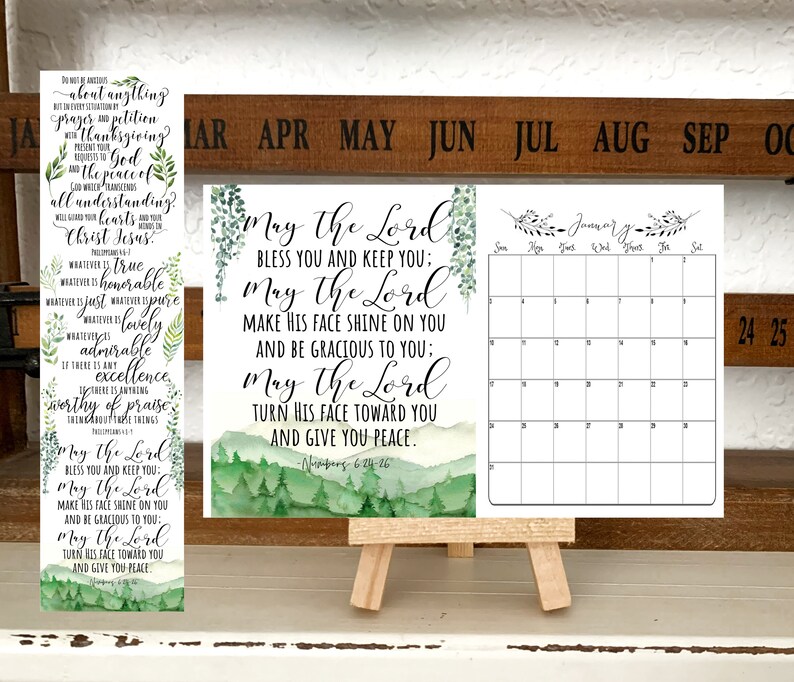 JA MAR APR MAY JUN JUL AUG SEP OC
24 25
Do not be anxious
about anything
but in every situation by
prayer and petition
with thanksgiving
present your
requests to God
and the peace of
God which transcends
all understanding
will guard your hearts and your
minds in
Christ Jesus.
Philippians 4:6-7
whatever is true
whatever is honorable
whatever is just whatever is pure
whatever is lovely
whatever is
admirable
if there is any
excellence
if there is anyhing
worthy of praise
think about these things
Philippians 4:8-9
May The Lord
bless you and keep you;
May The Lord
make His face shine on you
and be gracious to you;
May The Lord
turn His face toward you
and give you peace.
-Numbers 6:24-26
May The Lord
bless you and keep you;
May The Lord
make His face shine on you
and be gracious to you;
May The Lord
turn His face toward you
and give you peace.
-Numbers 6:24-26
January
Sun. Mon. Tues. Wed. Thurs. Fri. Sat.
1 2
3 4 5 6 7 8 9
10 11 12 13 14 15 16
17 18 19 20 21 22 23
24 25 26 27 28 29 30
31